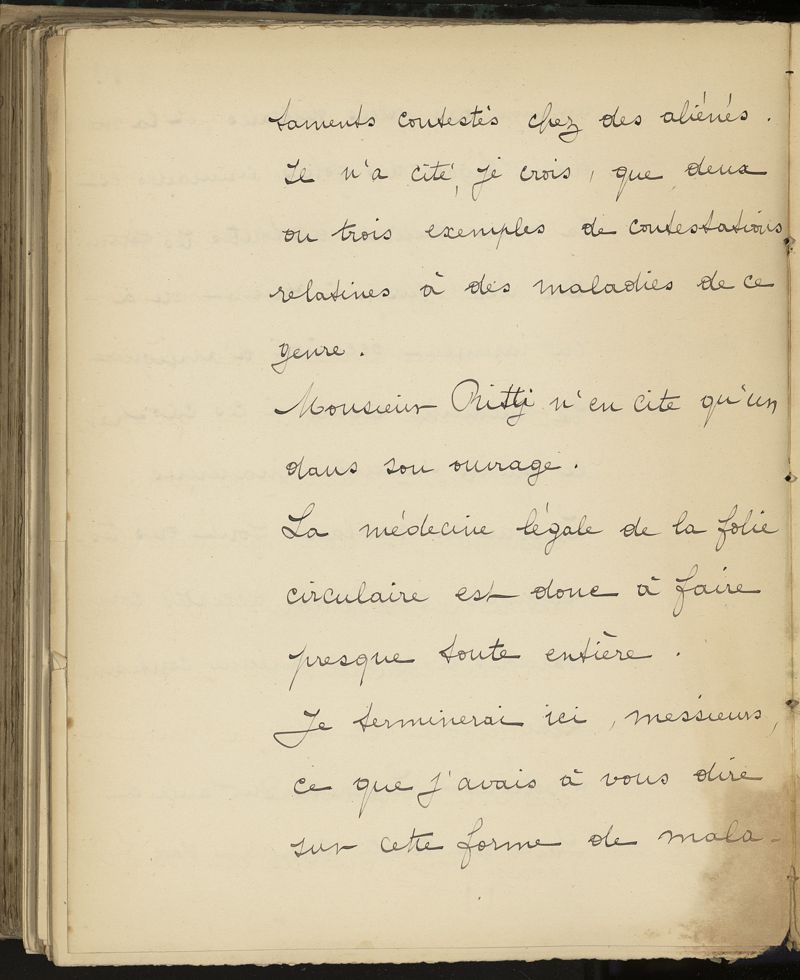 taments contestés chez des aliénés.
Il n'a cité, je crois, que deux
ou trois exemples de contestations
relatives à des maladies de ce
genre.
Monsieur Ritti n'en cite qu'un
dans son ouvrage.
La médecine légale de la folie
circulaire est donc à faire
presque toute entière.
Je terminerai ici, messieurs,
ce que j'avais à vous dire
sur cette forme de mala-